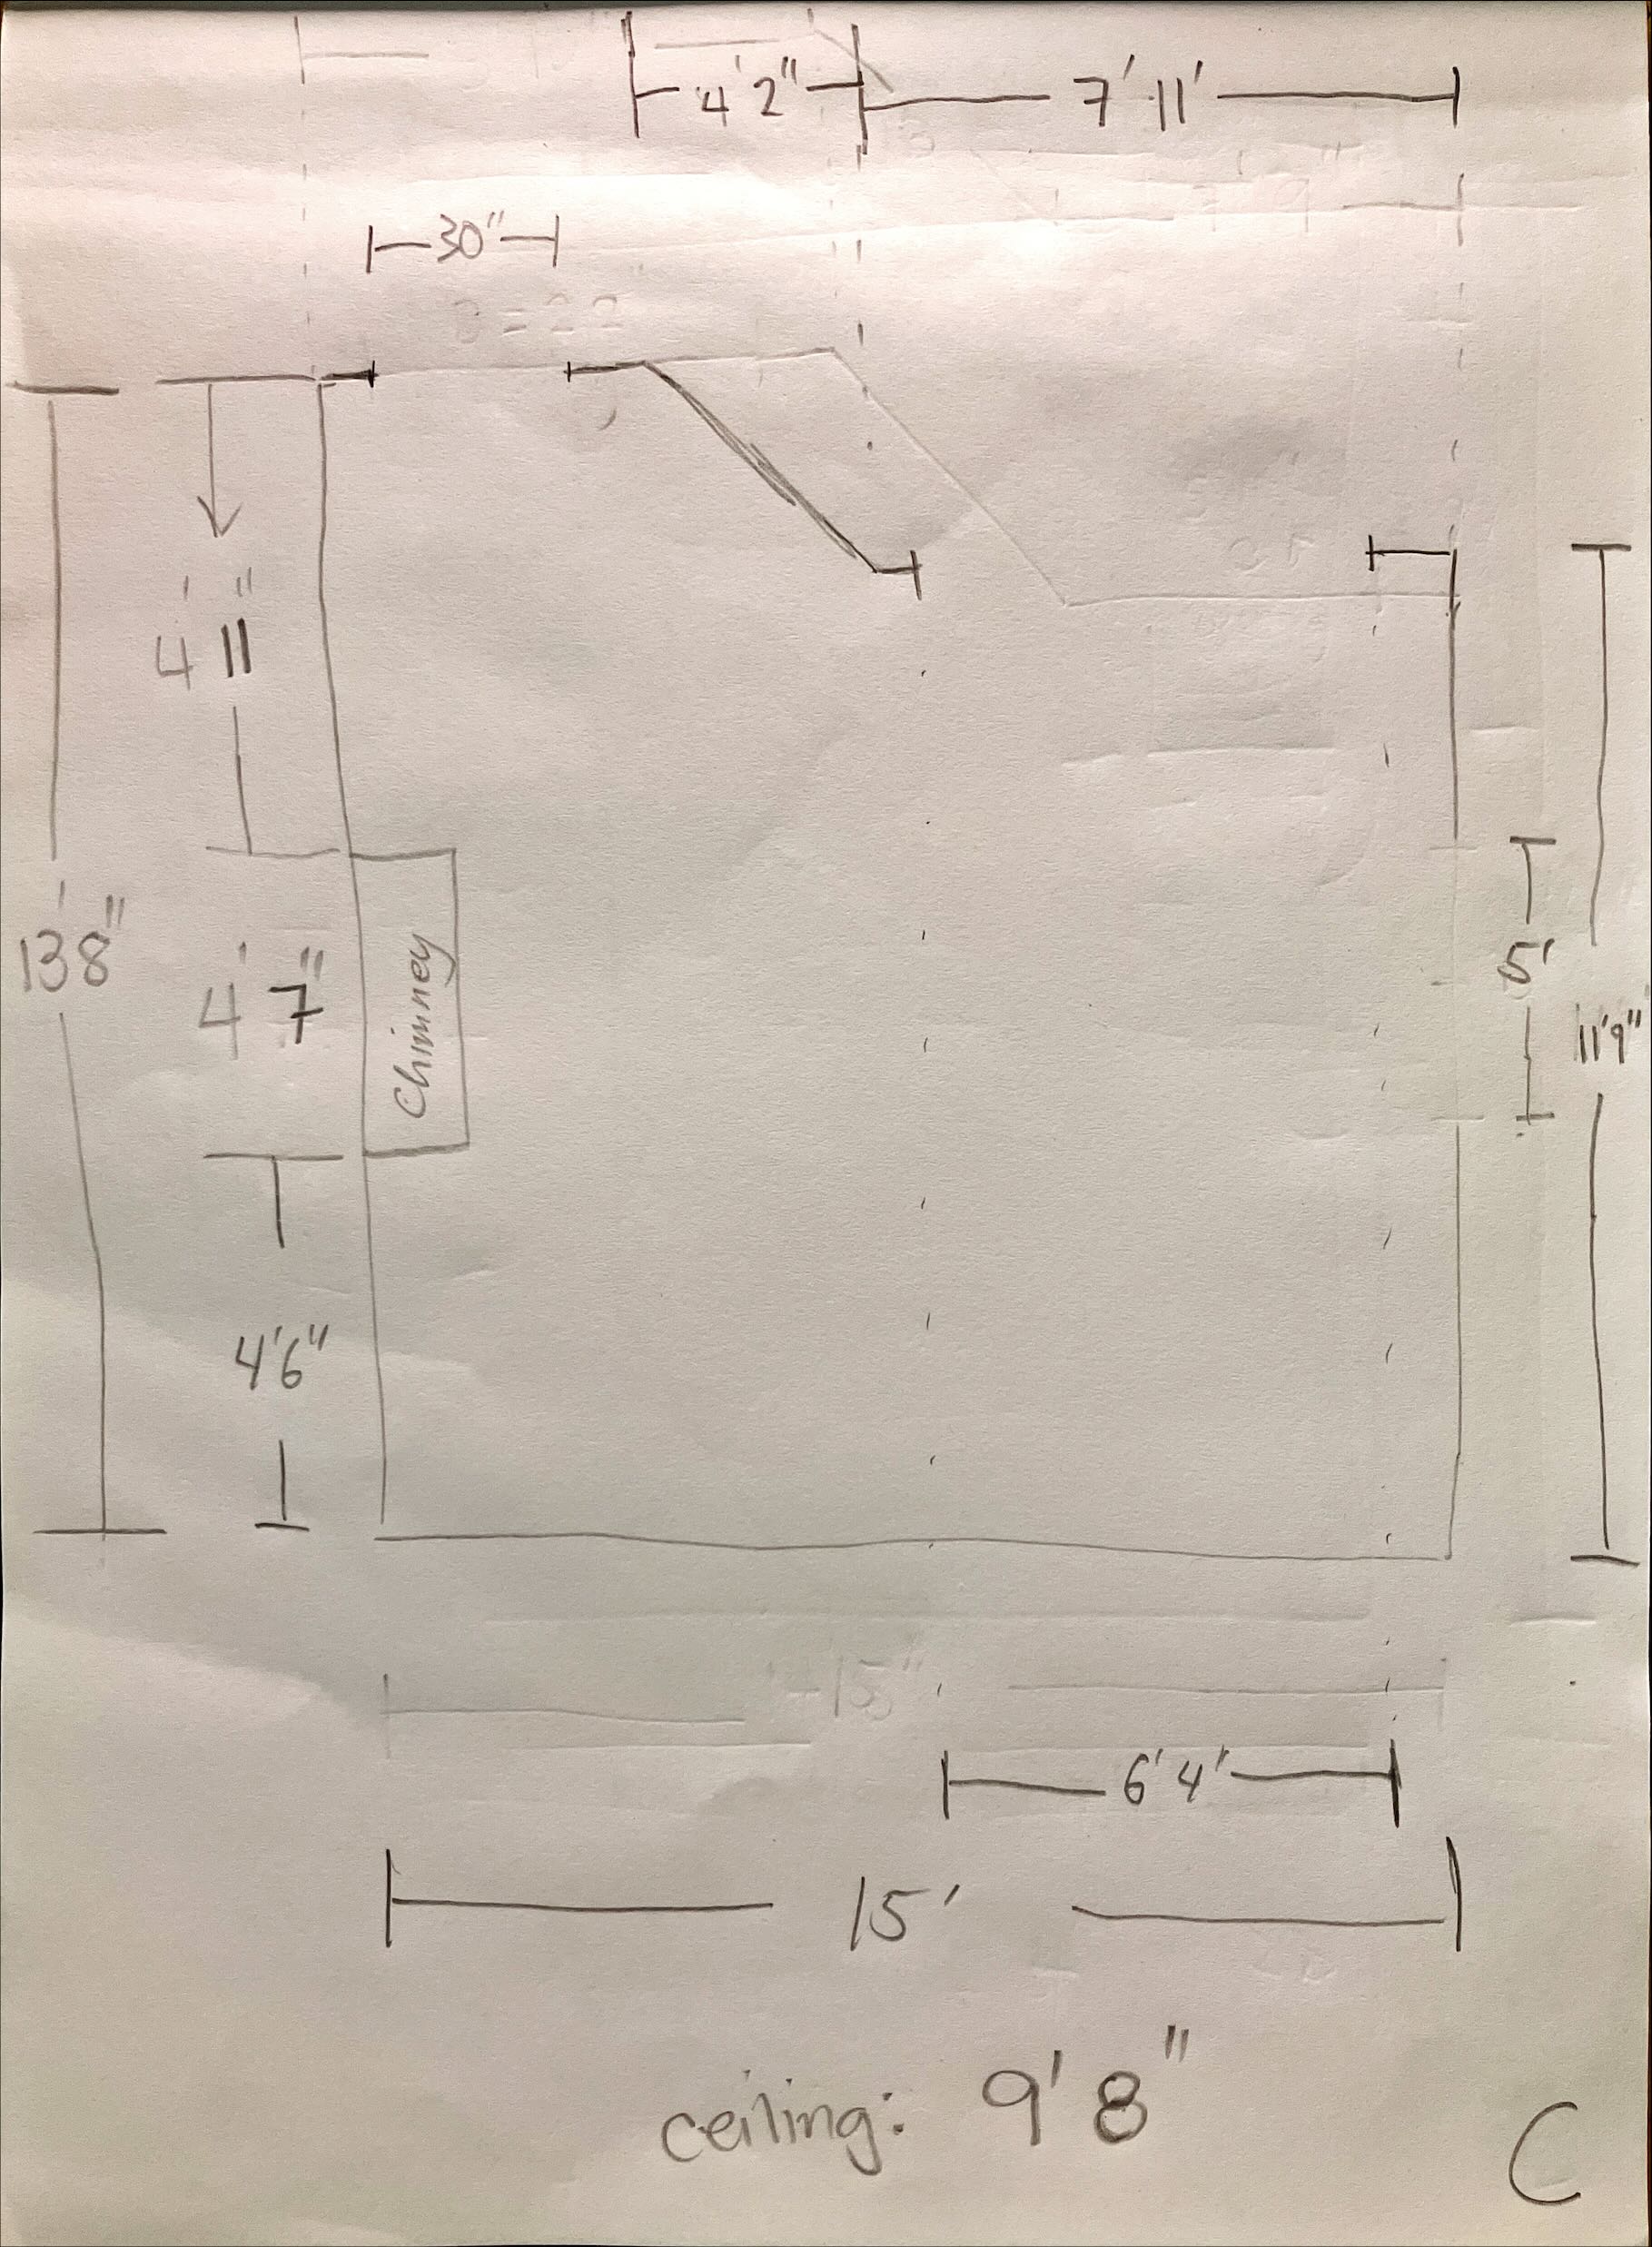 4'2" 7'11'
30"
4'11"
13'8"
4'7"
Chimney
5'
11'9"
4'6"
15"
6'4'
15'
ceiling: 9'8"
C